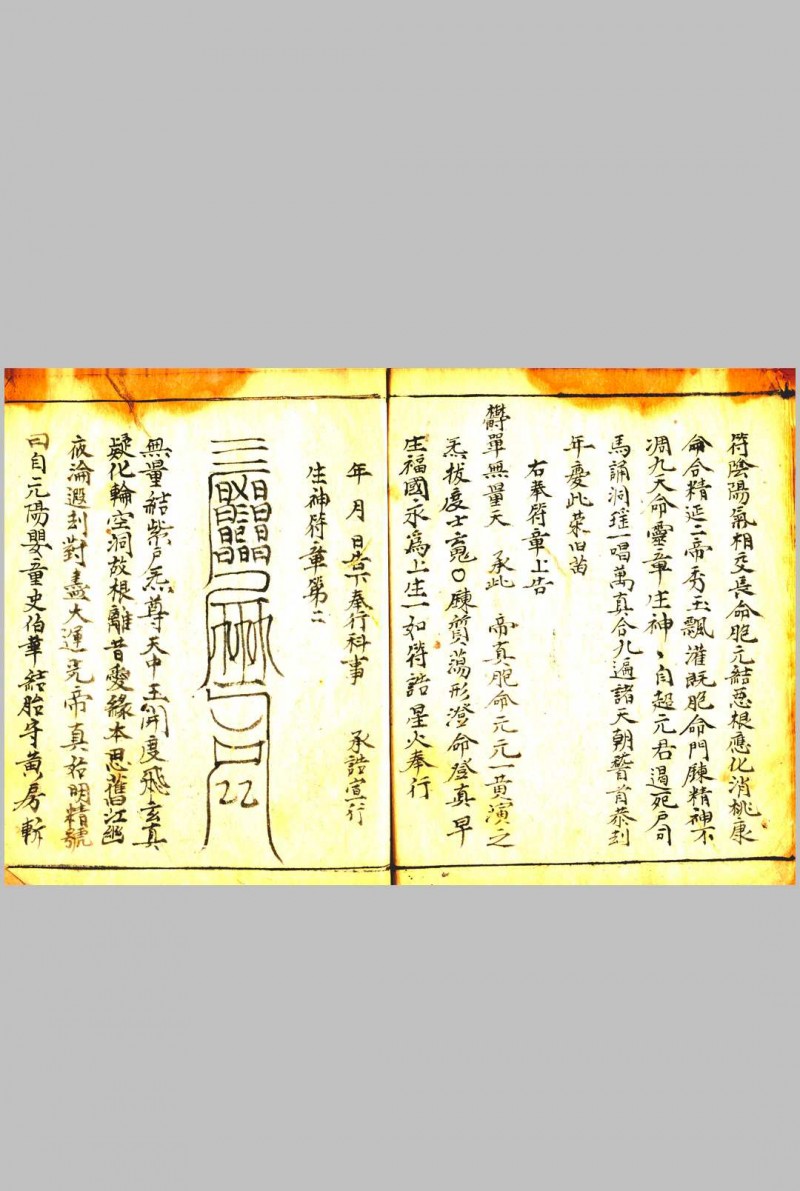 符陰陽氣相交長命胞元結惡根應化消桃康
侖合精延二帝秀玉飄灌旣胞命門鍊精神不
凋九天命靈章生神、自超元君遏死戶司
馬誦洞瑤一唱萬真合九遍諸天朝誓首恭刦
年慶此榮旧苗
右奉符章上告
欝單無量天 承此 帝真胞命元元一黄演之
炁拔度士䰟〇鍊質蕩形澄命登真早
生福國永爲上生一如符誥星火奉行
年 月 日告下奉行科事 承誥宣行
生神符章第二
無量結紫戶炁尊天中王開度飛玄真
凝化輪空洞故根離昔愛緣本思舊江幽
夜淪遐刦對盡大運先帝真始明精號
曰自元陽嬰童史伯華結胎守黄房斬